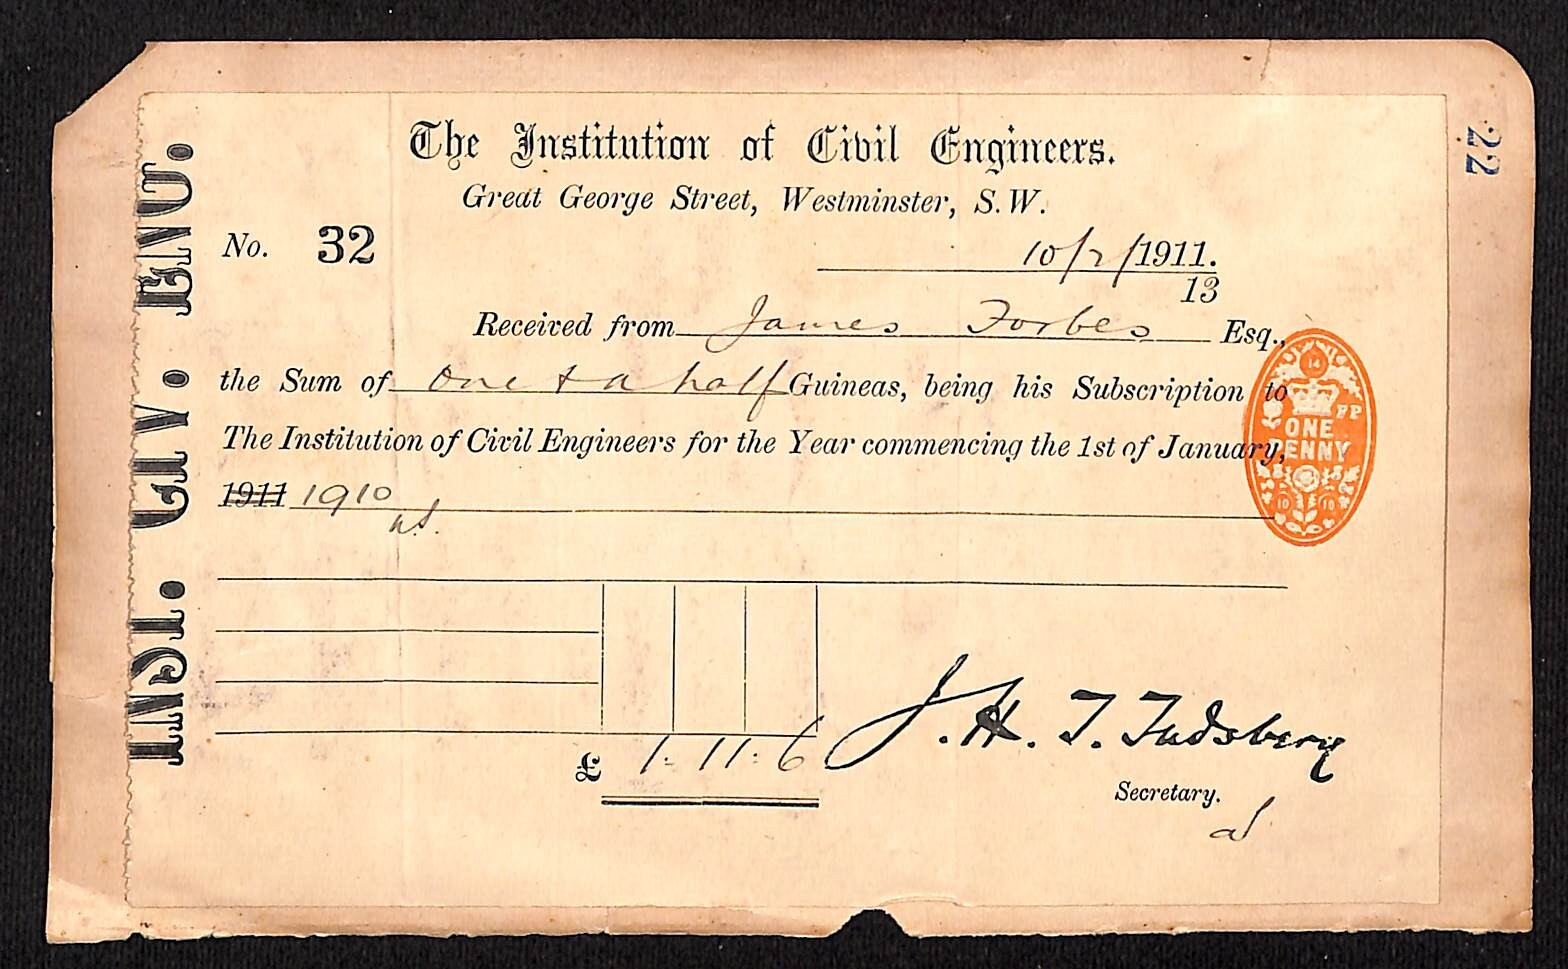 The Institution of Civil Engineers.
Great George Street, Westminster, S.W.
No. 32
10/2/1911.
13
Received from James Forbes Esq.,
the Sum of One & a half Guineas, being his Subscription to
The Institution of Civil Engineers for the Year commencing the 1st of January,
1911 1910
£ 1. 11. 6
J. H. T. Tudsbery
Secretary.
INST. CIV. ENG.
22
ONE
PENNY